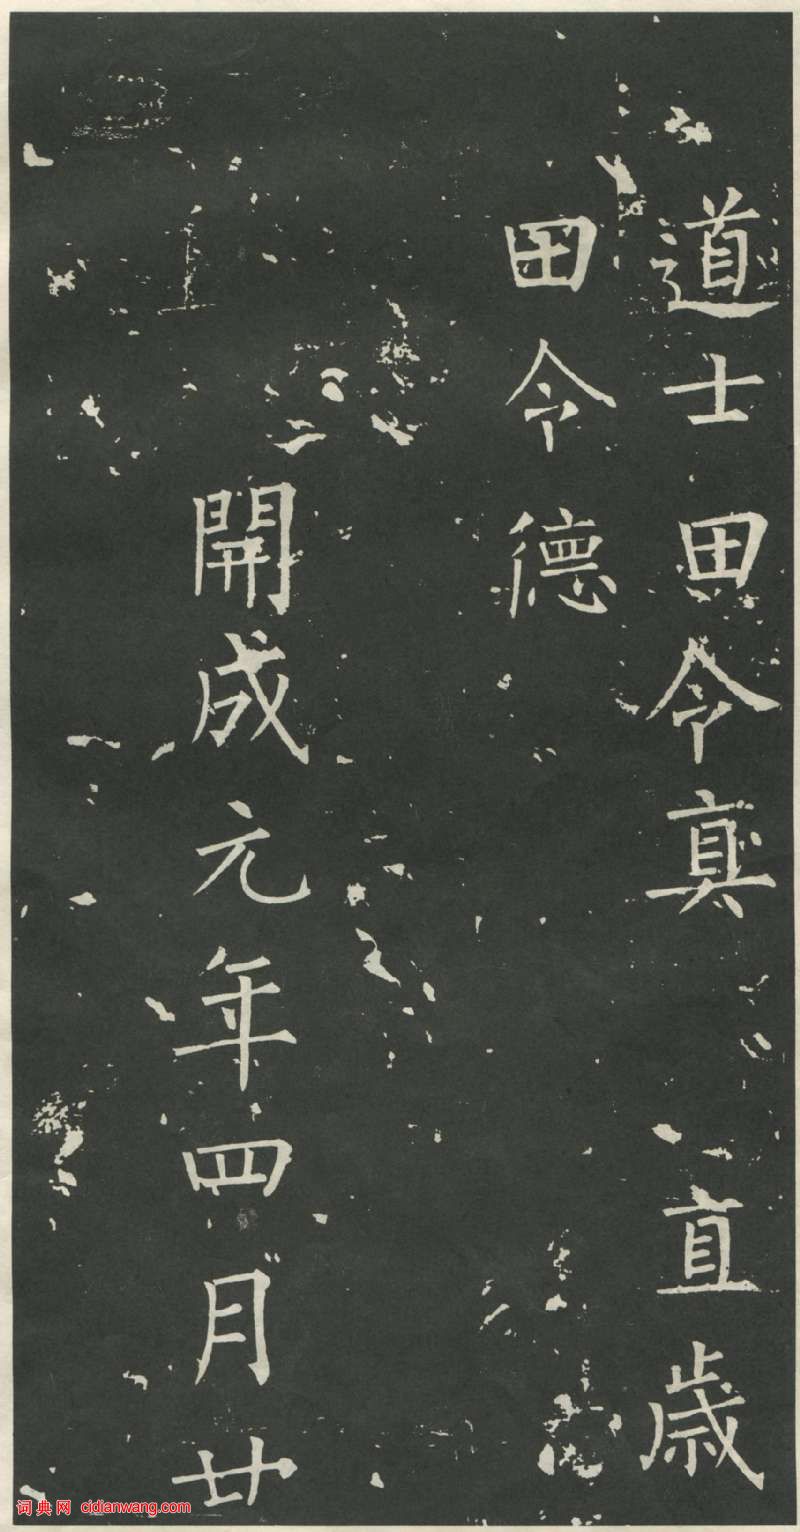 道士田令真 直歲
田令德
開成元年四月廿
词典网 cidianwang.com